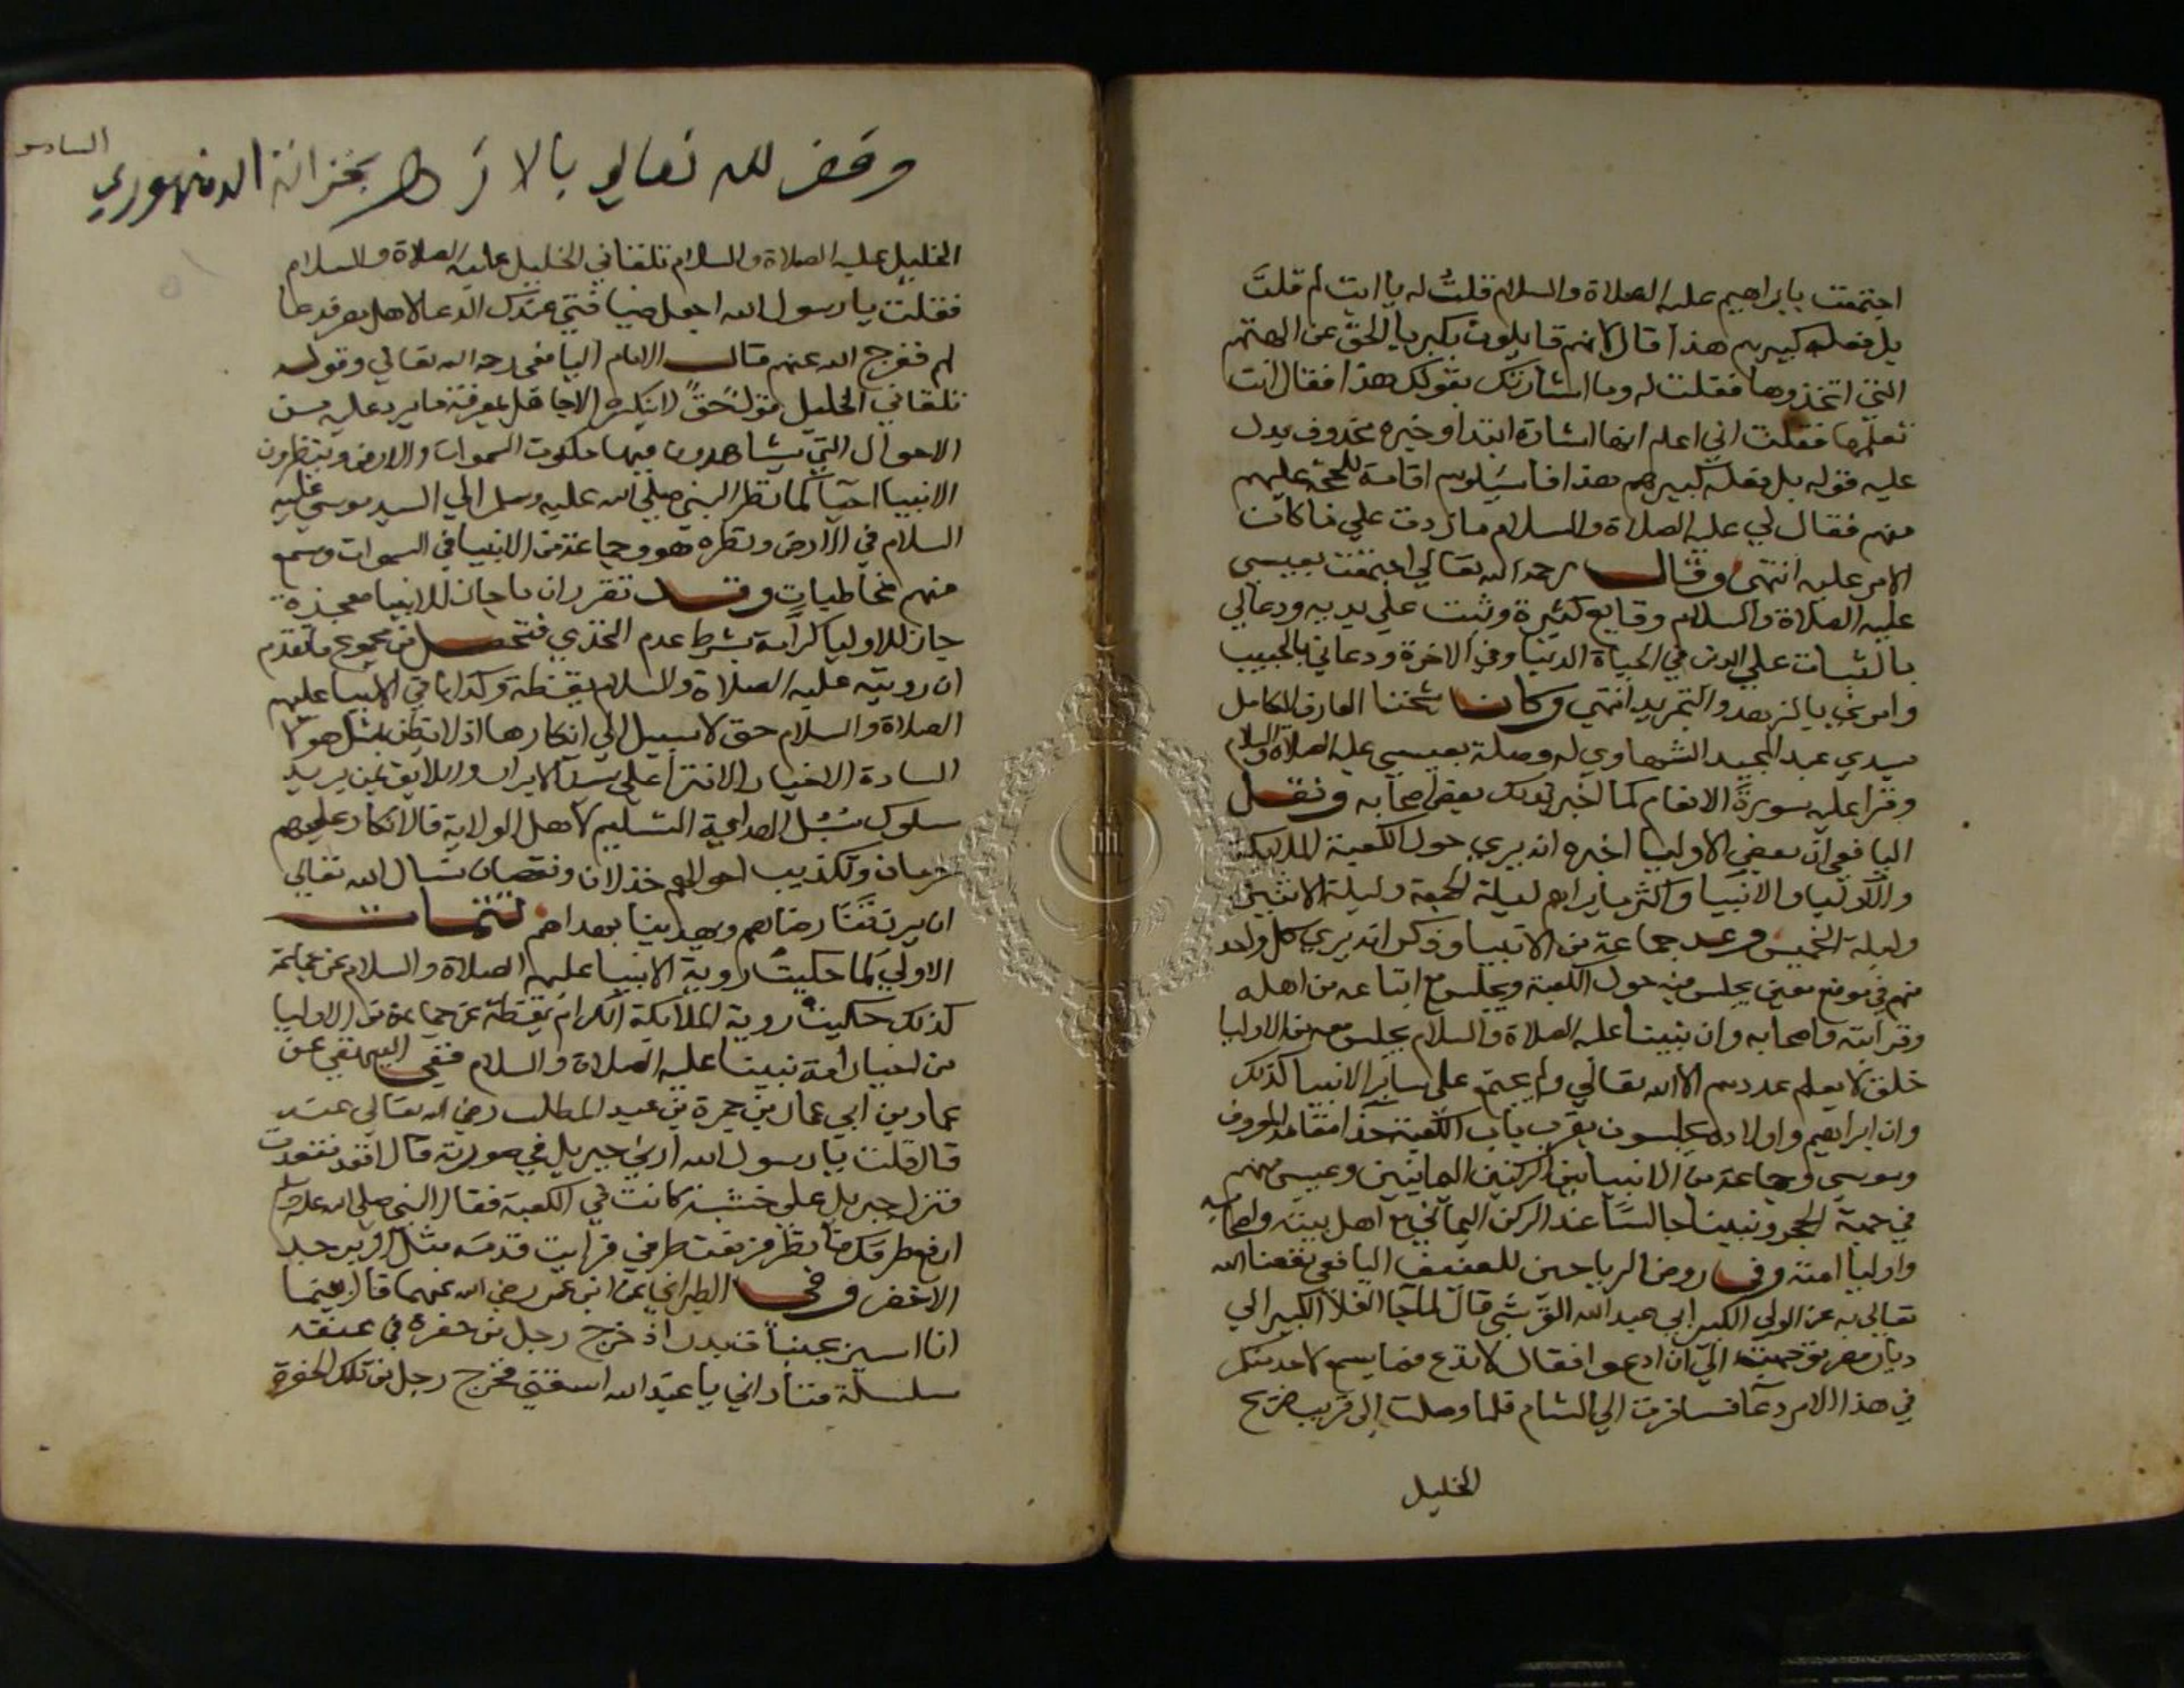 اجتمعت بابراهيم عليه الصلاة والسلام فقلت له يا ابت لم قلت
بل فعله كبيرهم هذا قال لانهم قايلون بكبريا الحق عن الهتهم
التي اتخذوها فقلت له وما اشارتك بقولك هذا فقال انت
تعلمها فقلت اني اعلم انها اشارة ابتدا وخبره محذوف يدل
عليه قوله بل فعله كبيرهم هذا فاسيلوهم اقامة للحجة عليهم
منهم فقال لي عليه الصلاة والسلام ما زدت علي ما كان
الامر عليه انتهى وقال رحمه الله تعالي اجتمعت بعيسى
عليه الصلاة والسلام وقايع كثيرة وتبت علي يديه ودعا لي
بالثبات علي الدين في الحياة الدنيا وفي الاخرة ودعاني بالحبيب
وامرني بالزهد والتجريد انتهي وكان شيخنا العارف الكامل
سيدي عبد المجيد الشهاوي له وصلة بعيسى عليه الصلاة والسلام
وقرا عليه سورة الانعام كما اخبر بذلك بعض اصحابه ونقل
اليافعي ان بعض الاوليا اخبره انه يري حول الكعبة الملايكة
والاوليا والانبيا واكثر ما يراهم ليلة الجمعة وليلة الاثنين
وليلة الخميس وعد جماعة من الانبيا وذكر انه يري كل واحد
منهم في موضع معين يجلس فيه حول الكعبة ويجلس مع اتباعه من اهله
وقرابته واصحابه وان نبينا عليه الصلاة والسلام يجلس معه من الاوليا
خلق لا يعلم عددهم الا الله تعالي ولم يجتمع علي ساير الانبيا كذلك
وان ابراهيم واولاده يجلسون بقرب باب الكعبة حذا مقامه المعروف
وموسي وجماعة من الانبيا بين الركنين اليمانيين وعيسى منهم
في جهة الحجر ونبينا جالسا عند الركن اليماني مع اهل بيته واصحابه
واوليا امته وفي روض الرياحين للعفيف اليافعي نفعنا الله
تعالي به عن الولي الكبير ابي عبد الله القرشي قال لما جا الغلا الكبير الي
ديار مصر توجهت الي ان ادعوا فقال لا تدع فما يسمع لاحد منكم
في هذا الامر دعا فسافرت الي الشام فلما وصلت الى قريب ضريح
الخليل
وقف لله تعالي بالازهر بخزانة الدمنهوري
السادس
الخليل عليه الصلاة والسلام تلقاني الخليل عليه الصلاة والسلام
فقلت يا رسول الله اجعل ضيافتي عندك الدعا لاهل مصر فدعا
لهم ففرج الله عنهم قال الامام اليافعي رحمه الله تعالي وقوله
تلقاني الخليل قول حق لا ينكره الا جاهل بمعرفة ما يرد عليه من
الاحوال التي يشاهدون فيها ملكوت السموات والارض وينظرون
الانبيا احيا كما نظر النبي صلي الله عليه وسلم الي السيد موسي عليه
السلام في الارض ونظره هو وجماعة من الانبيا في السموات وسمع
منهم مخاطبات وقد تقرر ان ما جاز للانبيا معجزة
جاز للاوليا كرامة بشرط عدم التحدي فتحصل من مجموع ما تقدم
ان رويته عليه الصلاة والسلام يقظة وكذا باقي الانبيا عليهم
الصلاة والسلام حق لا سبيل الي انكارها اذ لا يظن بمثل هولا
السادة الاخيار الافترا علي سيد الابرار واللايق بمن يريد
سلوك سبل الهداية التسليم لاهل الولاية فالانكار عليهم
حرمان وتكذيب احوالهم خذلان ونقصان نسال الله تعالي
ان يرزقنا رضاهم ويهدينا بهداهم تتمات
الاولي كما حكيت روية الانبيا عليهم الصلاة والسلام عن جماعة
كذلك حكيت روية الملايكة الكرام يقظة عن جماعة من الاوليا
من اخيار امة نبينا عليه الصلاة والسلام ففي البيهقي عن
عمار بن ابي عمار بن حمزة بن عبد المطلب رضي الله تعالي عنه
قال قلت يا رسول الله ارني جبريل في صورته قال اقعد فقعدت
فنزل جبريل علي خشبة كانت في الكعبة فقال النبي صلي الله عليه وسلم
ارفع طرفك فانظر فرفعت طرفي فرايت قدميه مثل الزبرجد
الاخضر وفي الطبراني عن ابن عمر رضي الله عنهما قال بينما
انا اسير بجنبات بدر اذ خرج رجل من حفرة في عنقه
سلسلة فناداني يا عبد الله اسقني فخرج رجل من تلك الحفرة